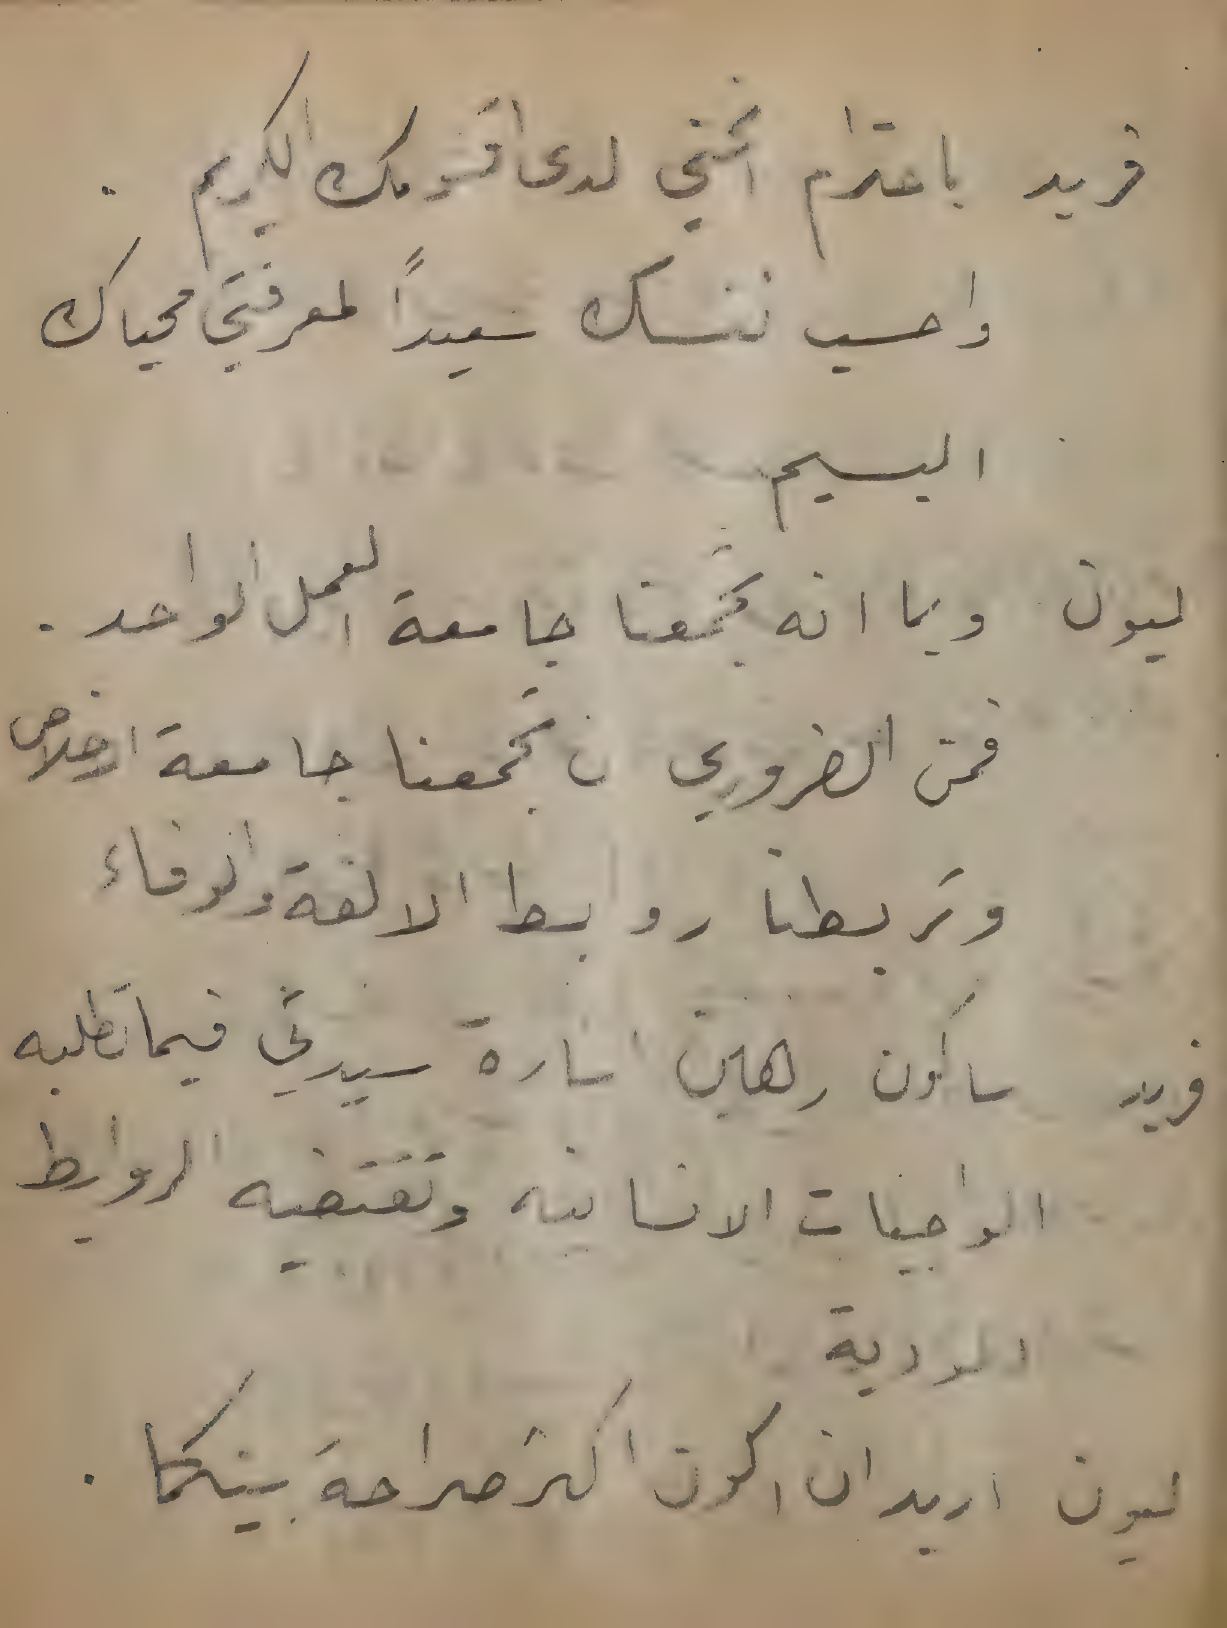 فريد باحترام انحني لدى اقدومك الكريم .
واحسب نفسك سعيداً لمعرفتي محياك
البسيم
ليون وبما انه تجمعنا جامعة العمل الواحد .
فمن الضروري ان تجمعنا جامعة الاخلاص
وتربطنا روابط الالفة والوفاء
فريد ساكون رهين اشارة سيدتي فيما تطلبه
الواجبات الانسانية وتقتضيه الروابط
الودية
ليون اريد ان اكون اكثر صراحة بينكما .